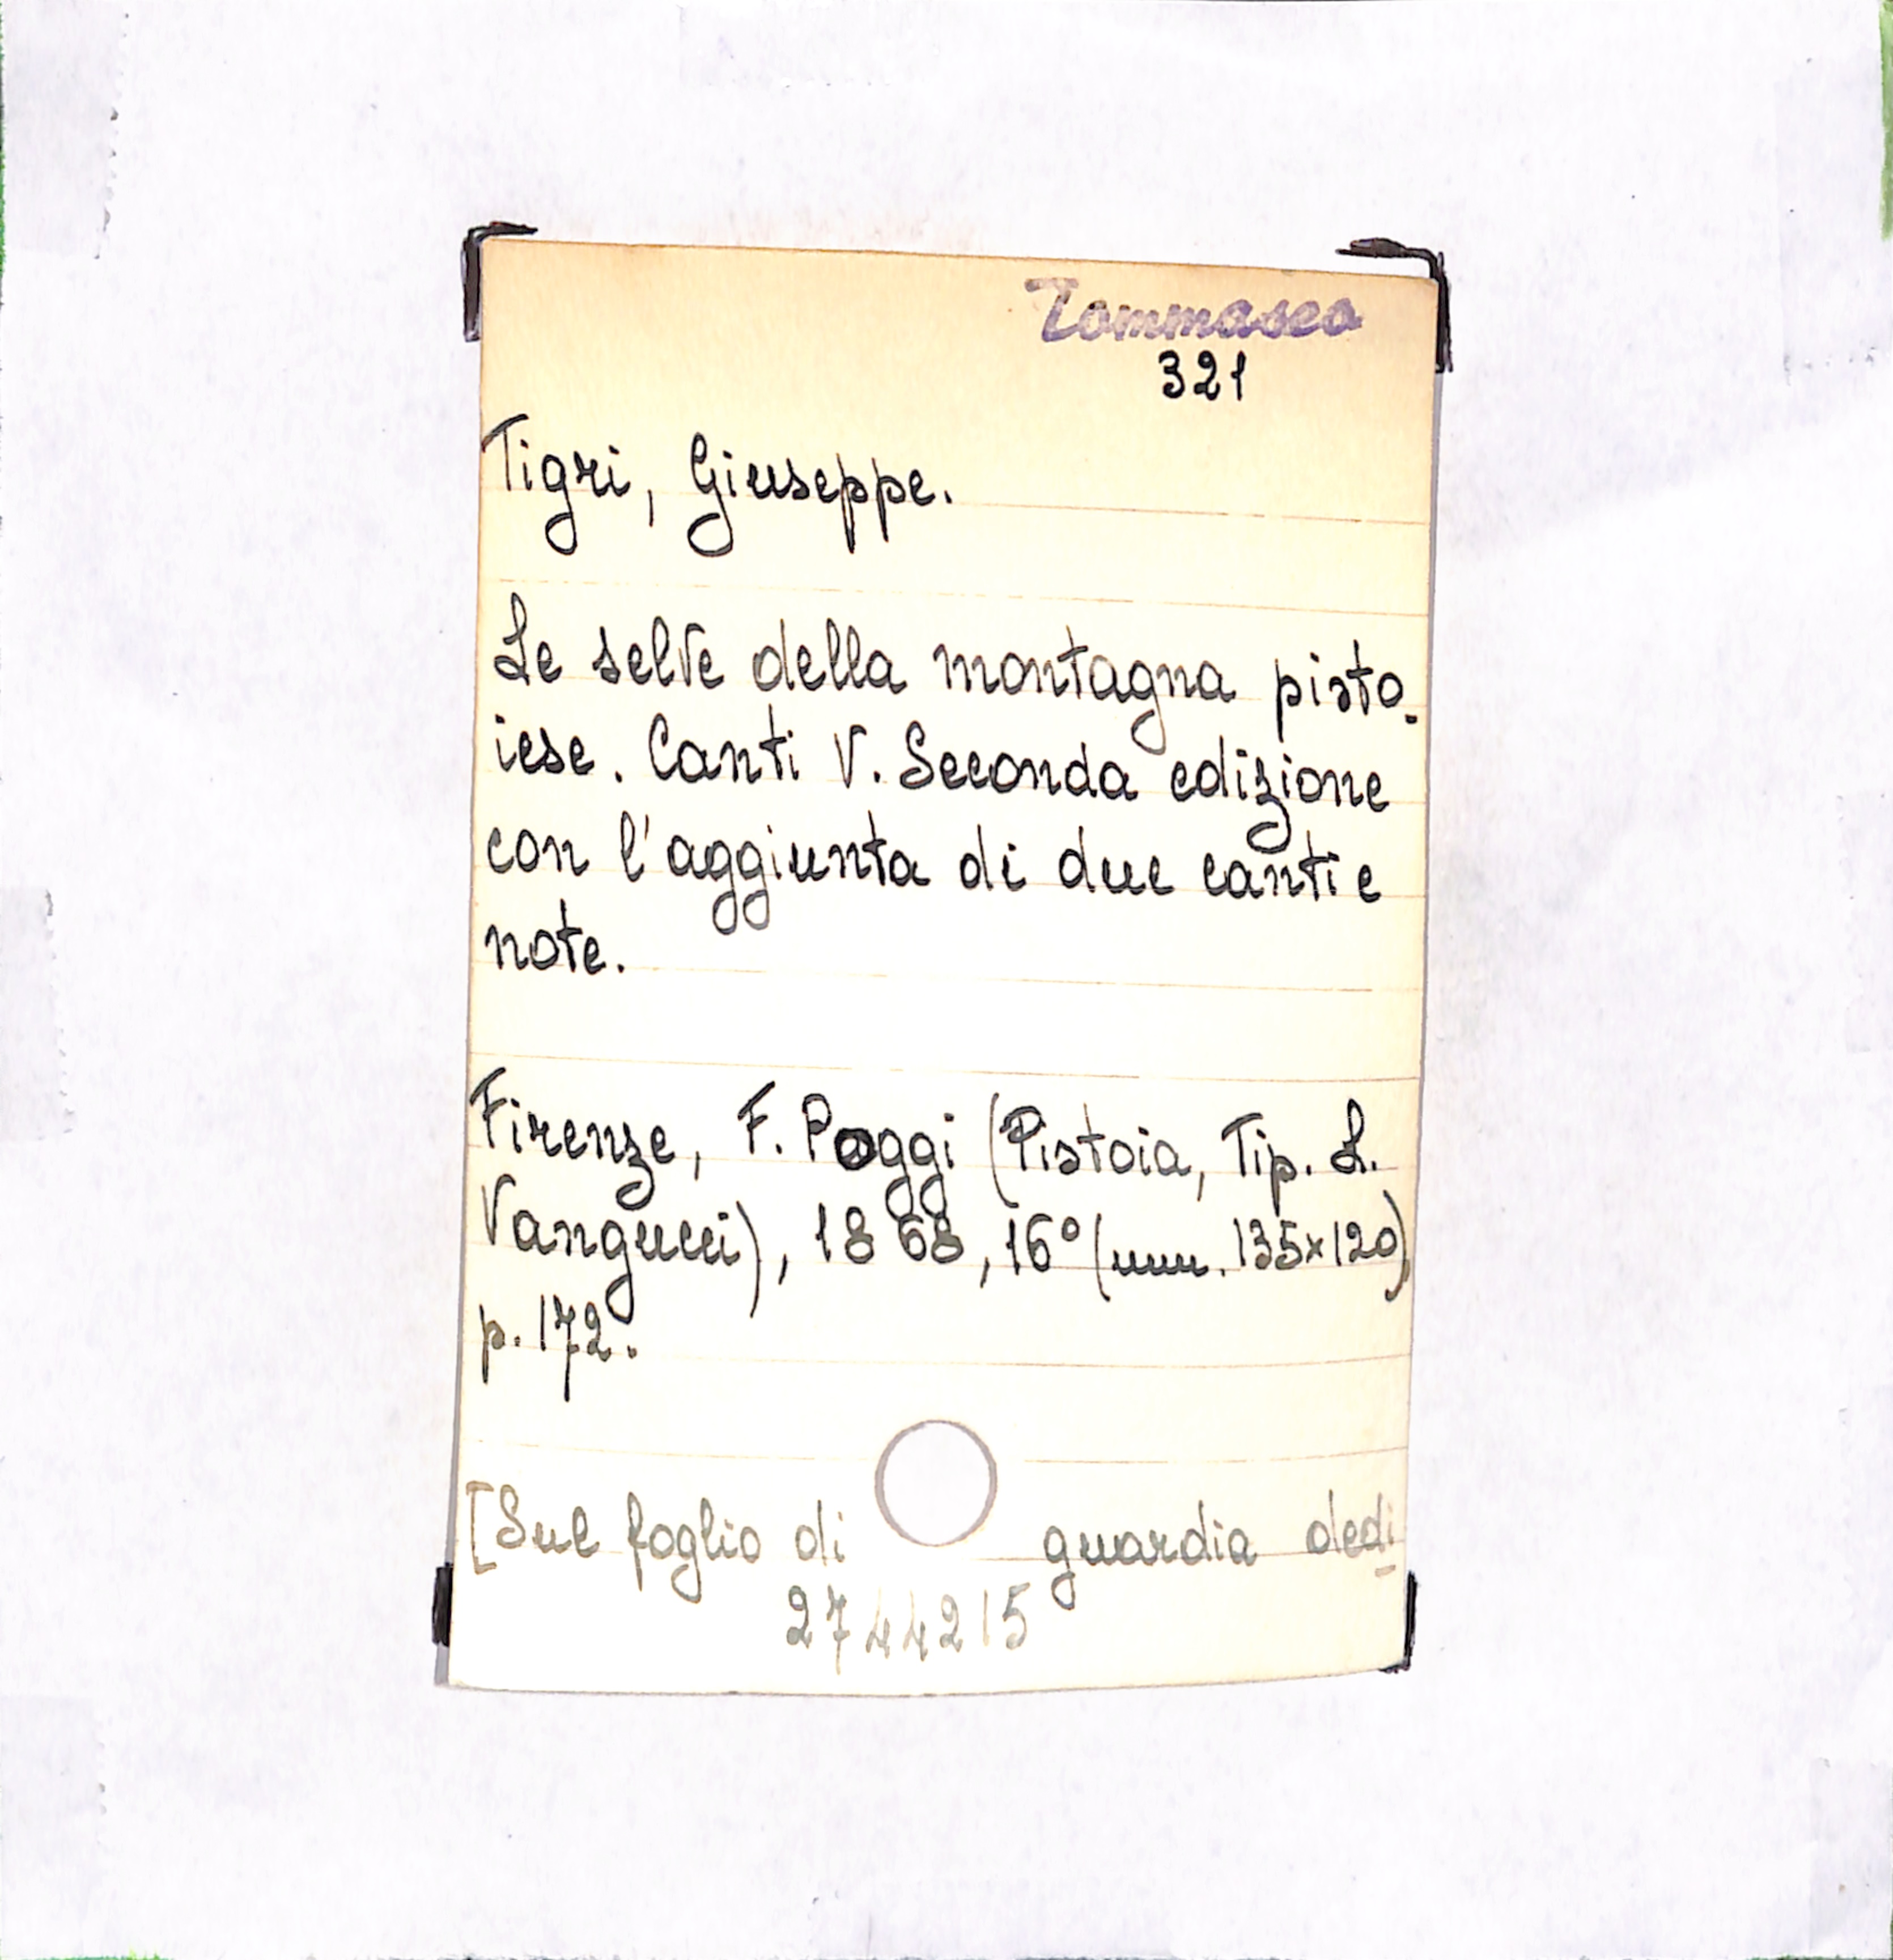 Tommaseo
321
Tigri, Giuseppe.
Le selve della montagna pisto-
iese. Canti V. Seconda edizione
con l'aggiunta di due canti e
note.
Firenze, F. Poggi (Pistoia, Tip. L.
Vangucci), 1868, 16° (mm. 135x120)
p. 172.
[Sul foglio di guardia dedi
2744215